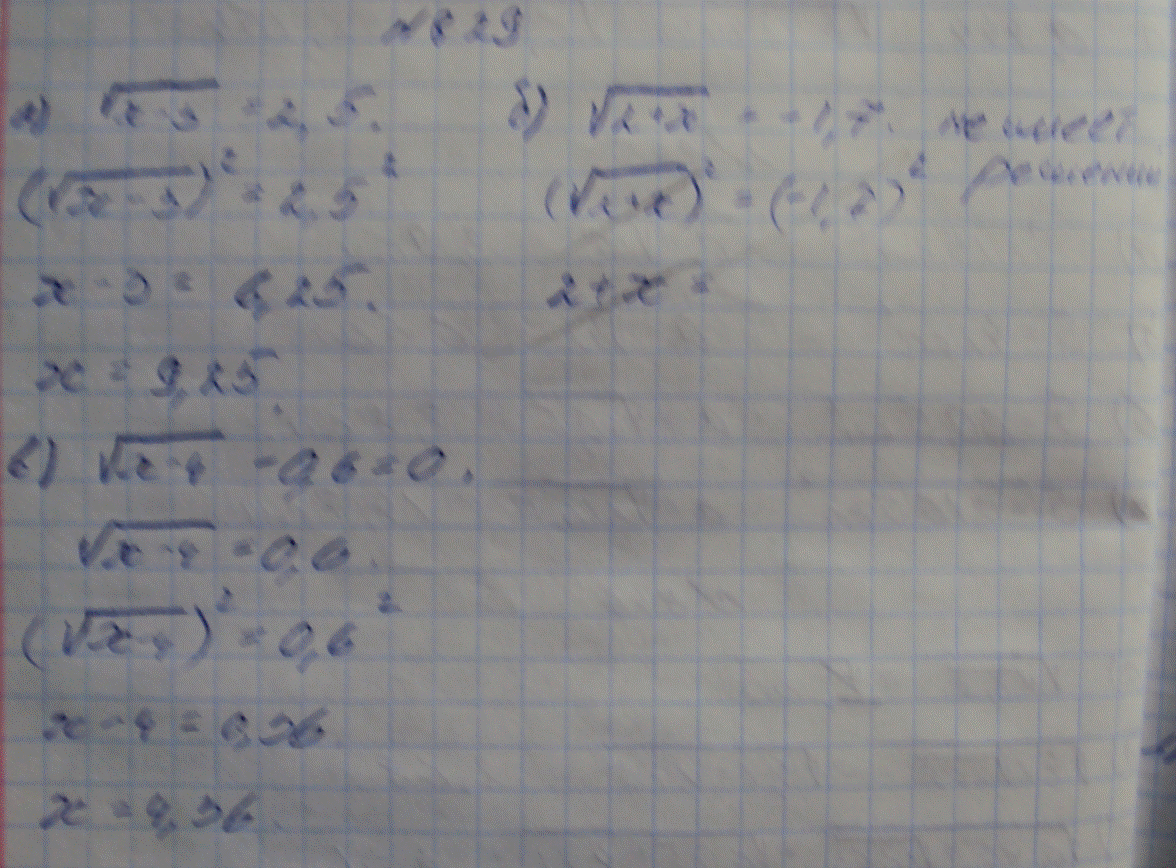 №829
а) √x-3 = 2,5.
(√x-3)² = 2,5²
x-3 = 6,25.
x = 9,25.
б) √2+x = -1,7. не имеет
решении
(√2+x)² = (-1,7)²
2+x =
в) √x-4 -0,6=0.
√x-4 = 0,6.
(√x-4)² = 0,6²
x-4 = 0,36
x = 4,36.